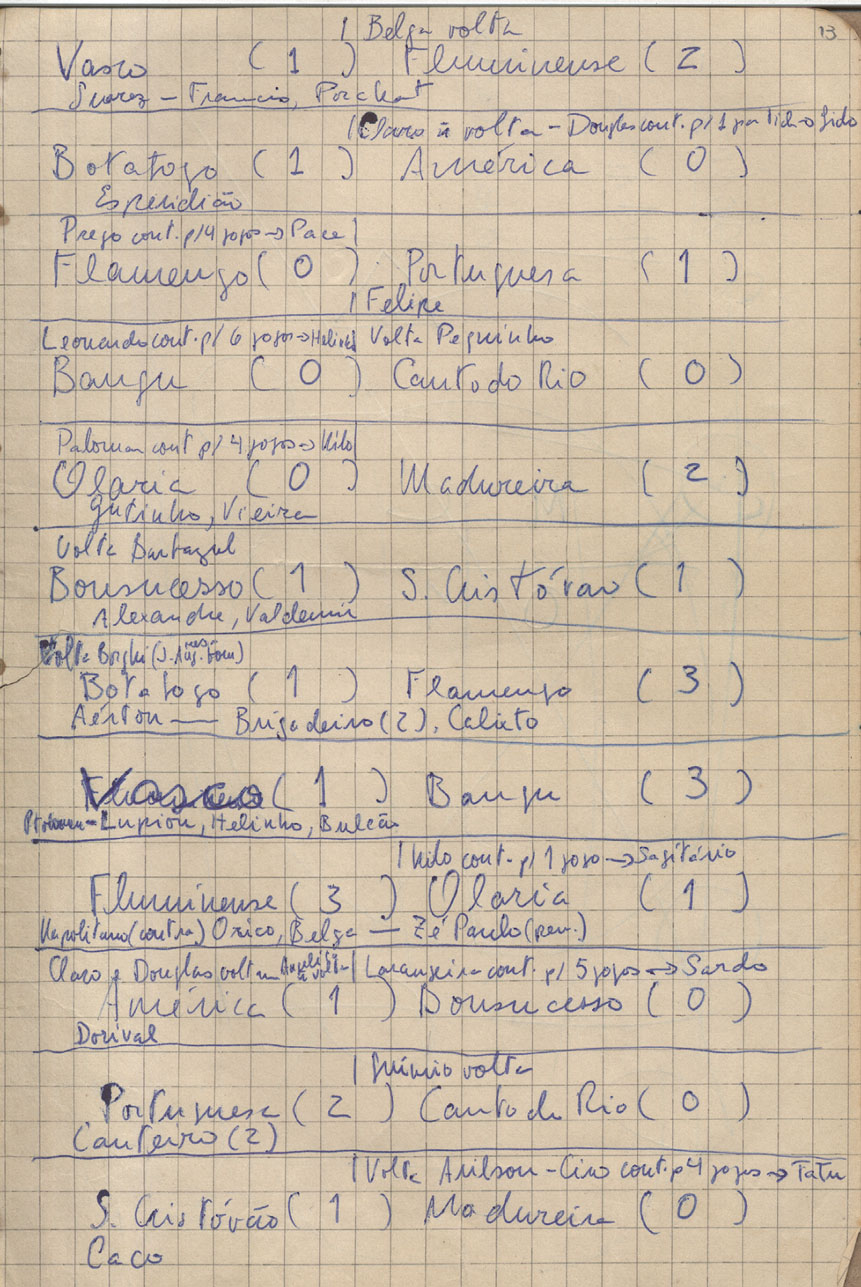 13
| Belga volta
Vasco ( 1 ) Fluminense ( 2 )
Suarez – Francis, Porchat
| Claro à volta – Douglas cont. p/ 1 partida → Sido
Botafogo ( 1 ) América ( 0 )
Esperidião
Prego cont. p/ 4 jogos → Pace |
Flamengo ( 0 ) Portuguesa ( 1 )
| Felipe
Leonardo cont. p/ 6 jogos → | Volta Peguinho
Bangu ( 0 ) Canto do Rio ( 0 )
Paloman cont p/ 4 jogos → Kilo |
Olaria ( 0 ) Madureira ( 2 )
Gutinho, Vieira
Volta Barbazul
Bonsucesso ( 1 ) S. Cristóvão ( 1 )
Alexandre, Valdemir
Volta Borghi
Botafogo ( 1 ) Flamengo ( 3 )
Aérton — Brigadeiro (2), Calixto
Vasco ( 1 ) Bangu ( 3 )
Lupion, Helinho, Bulcão
| Kilo cont. p/ 1 jogo → Sagitário
Fluminense ( 3 ) Olaria ( 1 )
Napolitano (contra) Orico, Belga — Zé Paulo (pen.)
Claro e Douglas voltam | Laranjeira cont. p/ 5 jogos → Sardo
América ( 1 ) Bonsucesso ( 0 )
Dorival
| volta
Portuguesa ( 2 ) Canto do Rio ( 0 )
Canteiro (2)
| Volta Arilson – Ciro cont. p 4 jogos → Tatu
S. Cristóvão ( 1 ) Madureira ( 0 )
Caco